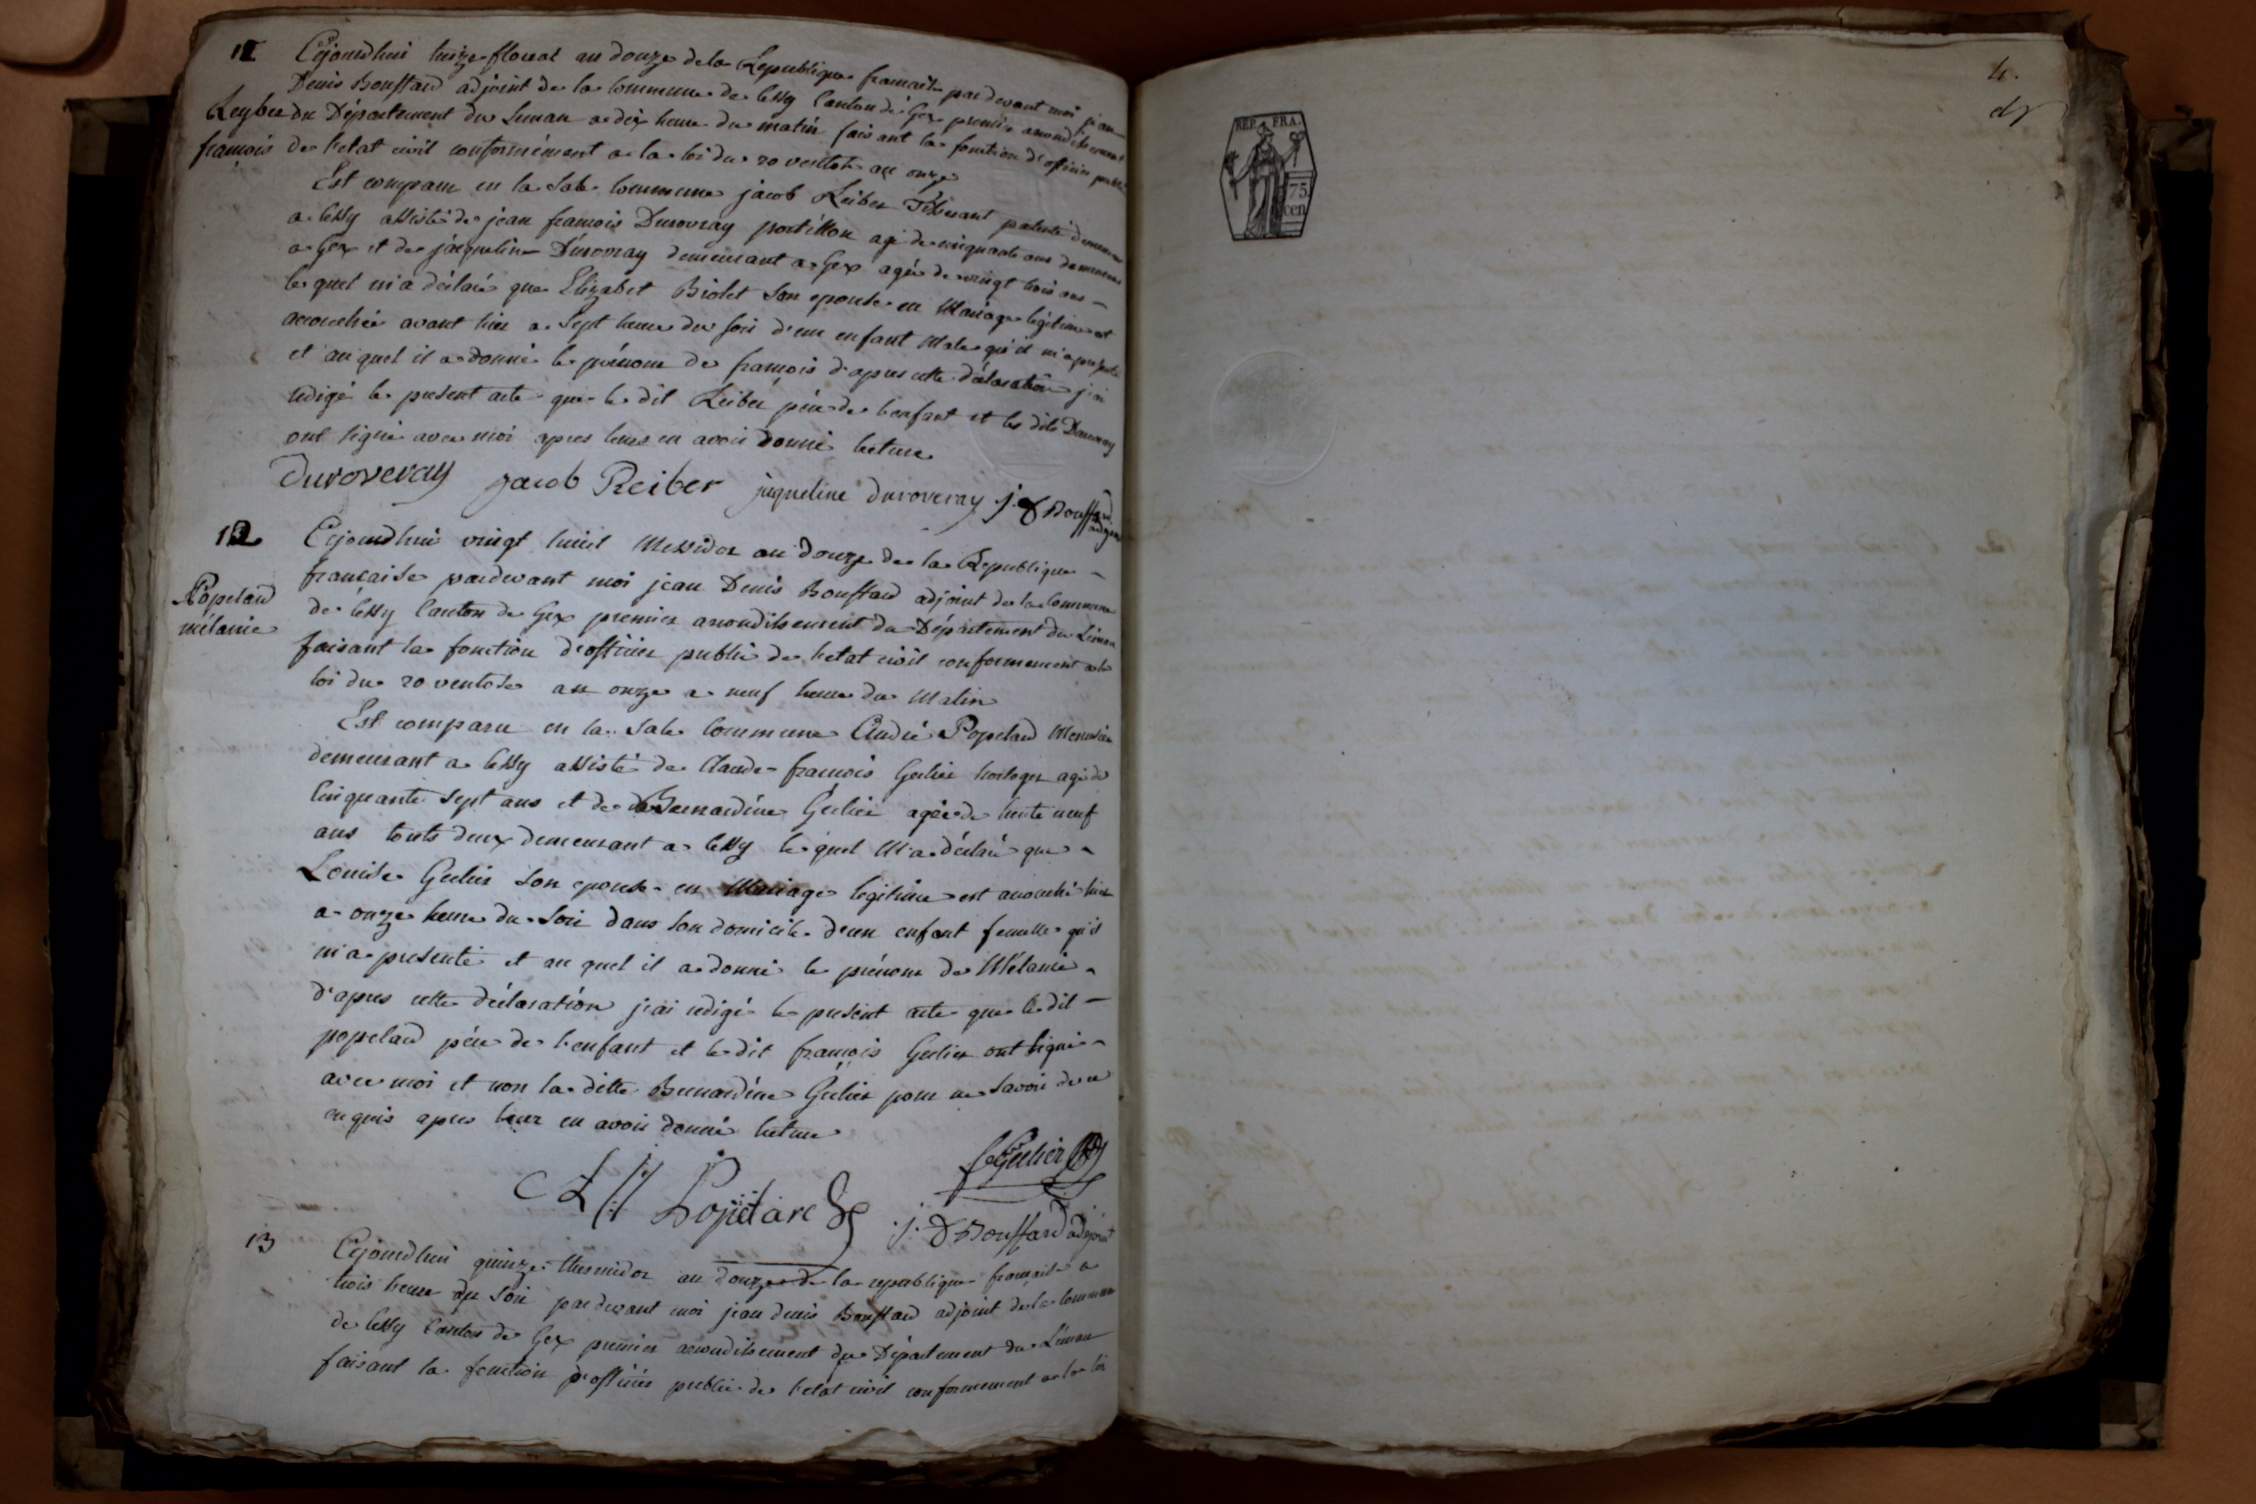 11
Cejourdhui treize floreal an douze de la Republique francaise par devant moi jean
Denis Bouffard adjoint de la commune de Cessy Canton de Gex premier arrondissement
Reyber
du Département du Leman a dix heure du matin faisant la fonction d'officier public
francois
de l'etat civil conformément a la loi du 20 ventose an onze
Est comparu en la Sale Commune jacob Reiber Tisserant patenté demeurant
a Cessy assisté de jean francois Duroveray postillon agé de cinquante ans demeurant
a Gex et de jacqueline Duroveray demeurant a Gex agée de vingt trois ans
lequel m'a déclaré que Elizabet Biolet son epouse en Mariage légitime est
accouchée avant hier a Sept heure du soir d'un enfant Male qu'il m'a presenté
et auquel il a donné le prénom de francois d'apres cette déclaration j'ai
redigé le present acte que le dit Reiber père de l'enfant et les dits Duroveray
ont signé avec moi apres leurs en avoir donné lecture
Duroveray jacob Reiber jaqueline duroveray j. D Bouffard adjoint
12
Cejourdhui vingt huit Messidor an douze de la Republique
francaise pardevant moi jean Denis Bouffard adjoint de la commune
Popelard
de Cessy Canton de Gex premier arrondissement du Département du Léman
mélanie
faisant la fonction d'officier public de l'etat civil conformement a la
loi du 20 ventose an onze a neuf heure du Matin
Est comparu en la Sale Commune André Popelard Menuisier
demeurant a Cessy assisté de Claude francois Gerlier horloger agé de
Cinquante Sept ans et de Bernardine Gerlier agée de trente neuf
ans touts deux demeurant a Cessy lequel M'a déclaré que
Louise Gerlier son epouse en Mariage legitime est accouché hier
a onze heure du Soir dans son domicile d'un enfant femelle qu'il
m'a presenté et au quel il a donné le prénom de Mélanie
d'apres cette déclaration j'ai redigé le present acte que le dit
popelard père de l'enfant et le dit francois Gerlier ont signé
avec moi et non la ditte Bernardine Gerlier pour ne Savoir de ce
enquis apres leur en avoir donné lecture
Popelard
Gerlier
j. D Bouffard adjoint
13
Cejourdhui quinze thermidor an douze de la republique française a
trois heure du Soir pardevant moi jean denis Bouffard adjoint de la commune
de Cessy Canton de Gex premier arrondissement du Département du Léman
faisant la fonction d'officier public de l'etat civil conformement a la loi
REP. FRA.
75
cen